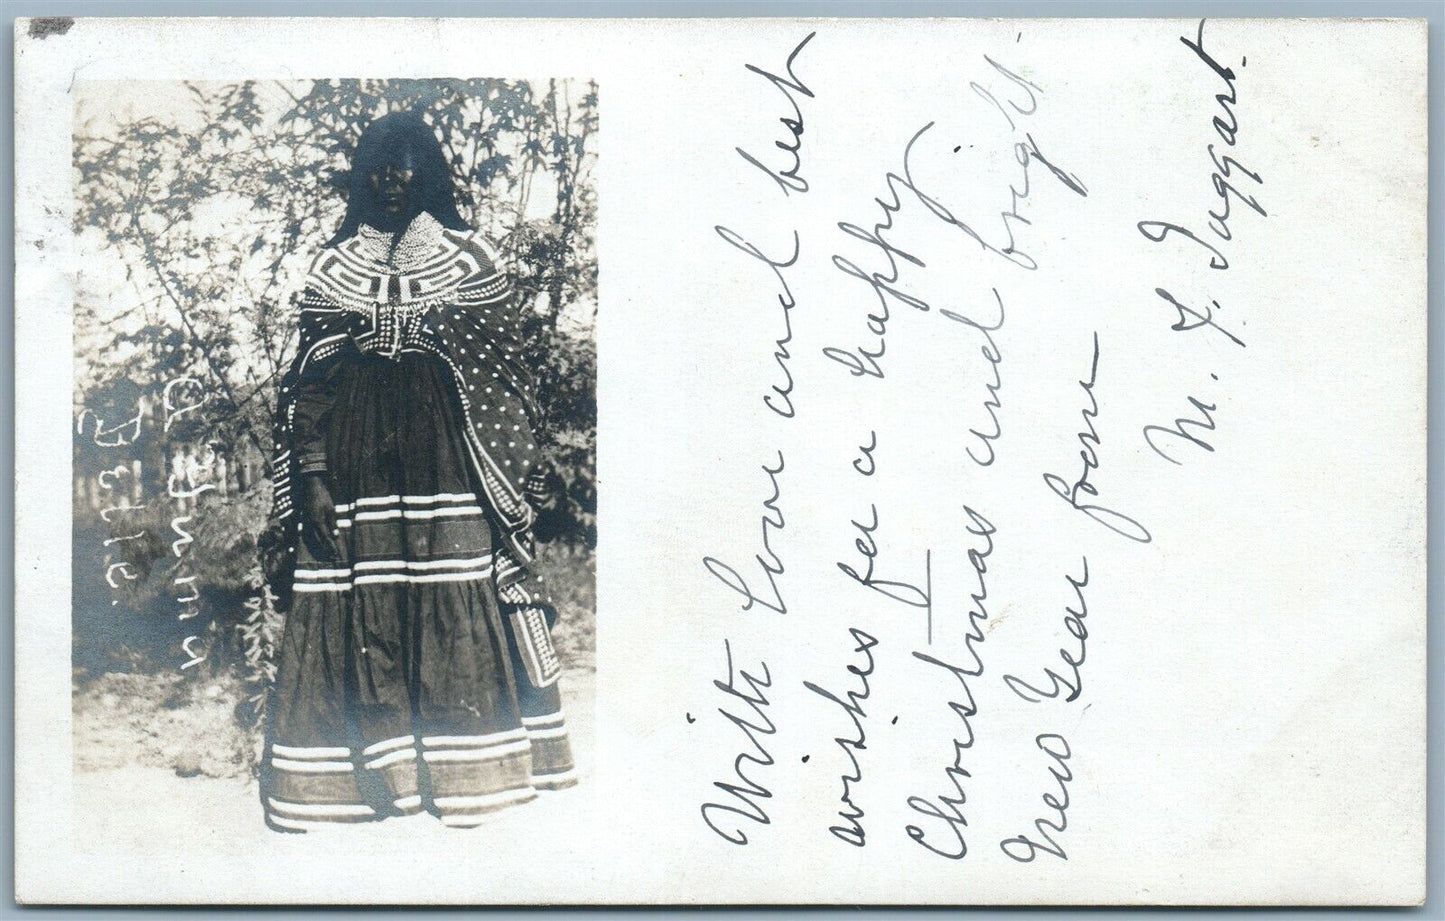 With Love and best
wishes for a happy
Christmas and bright
New Year from
M. F. Taggart.